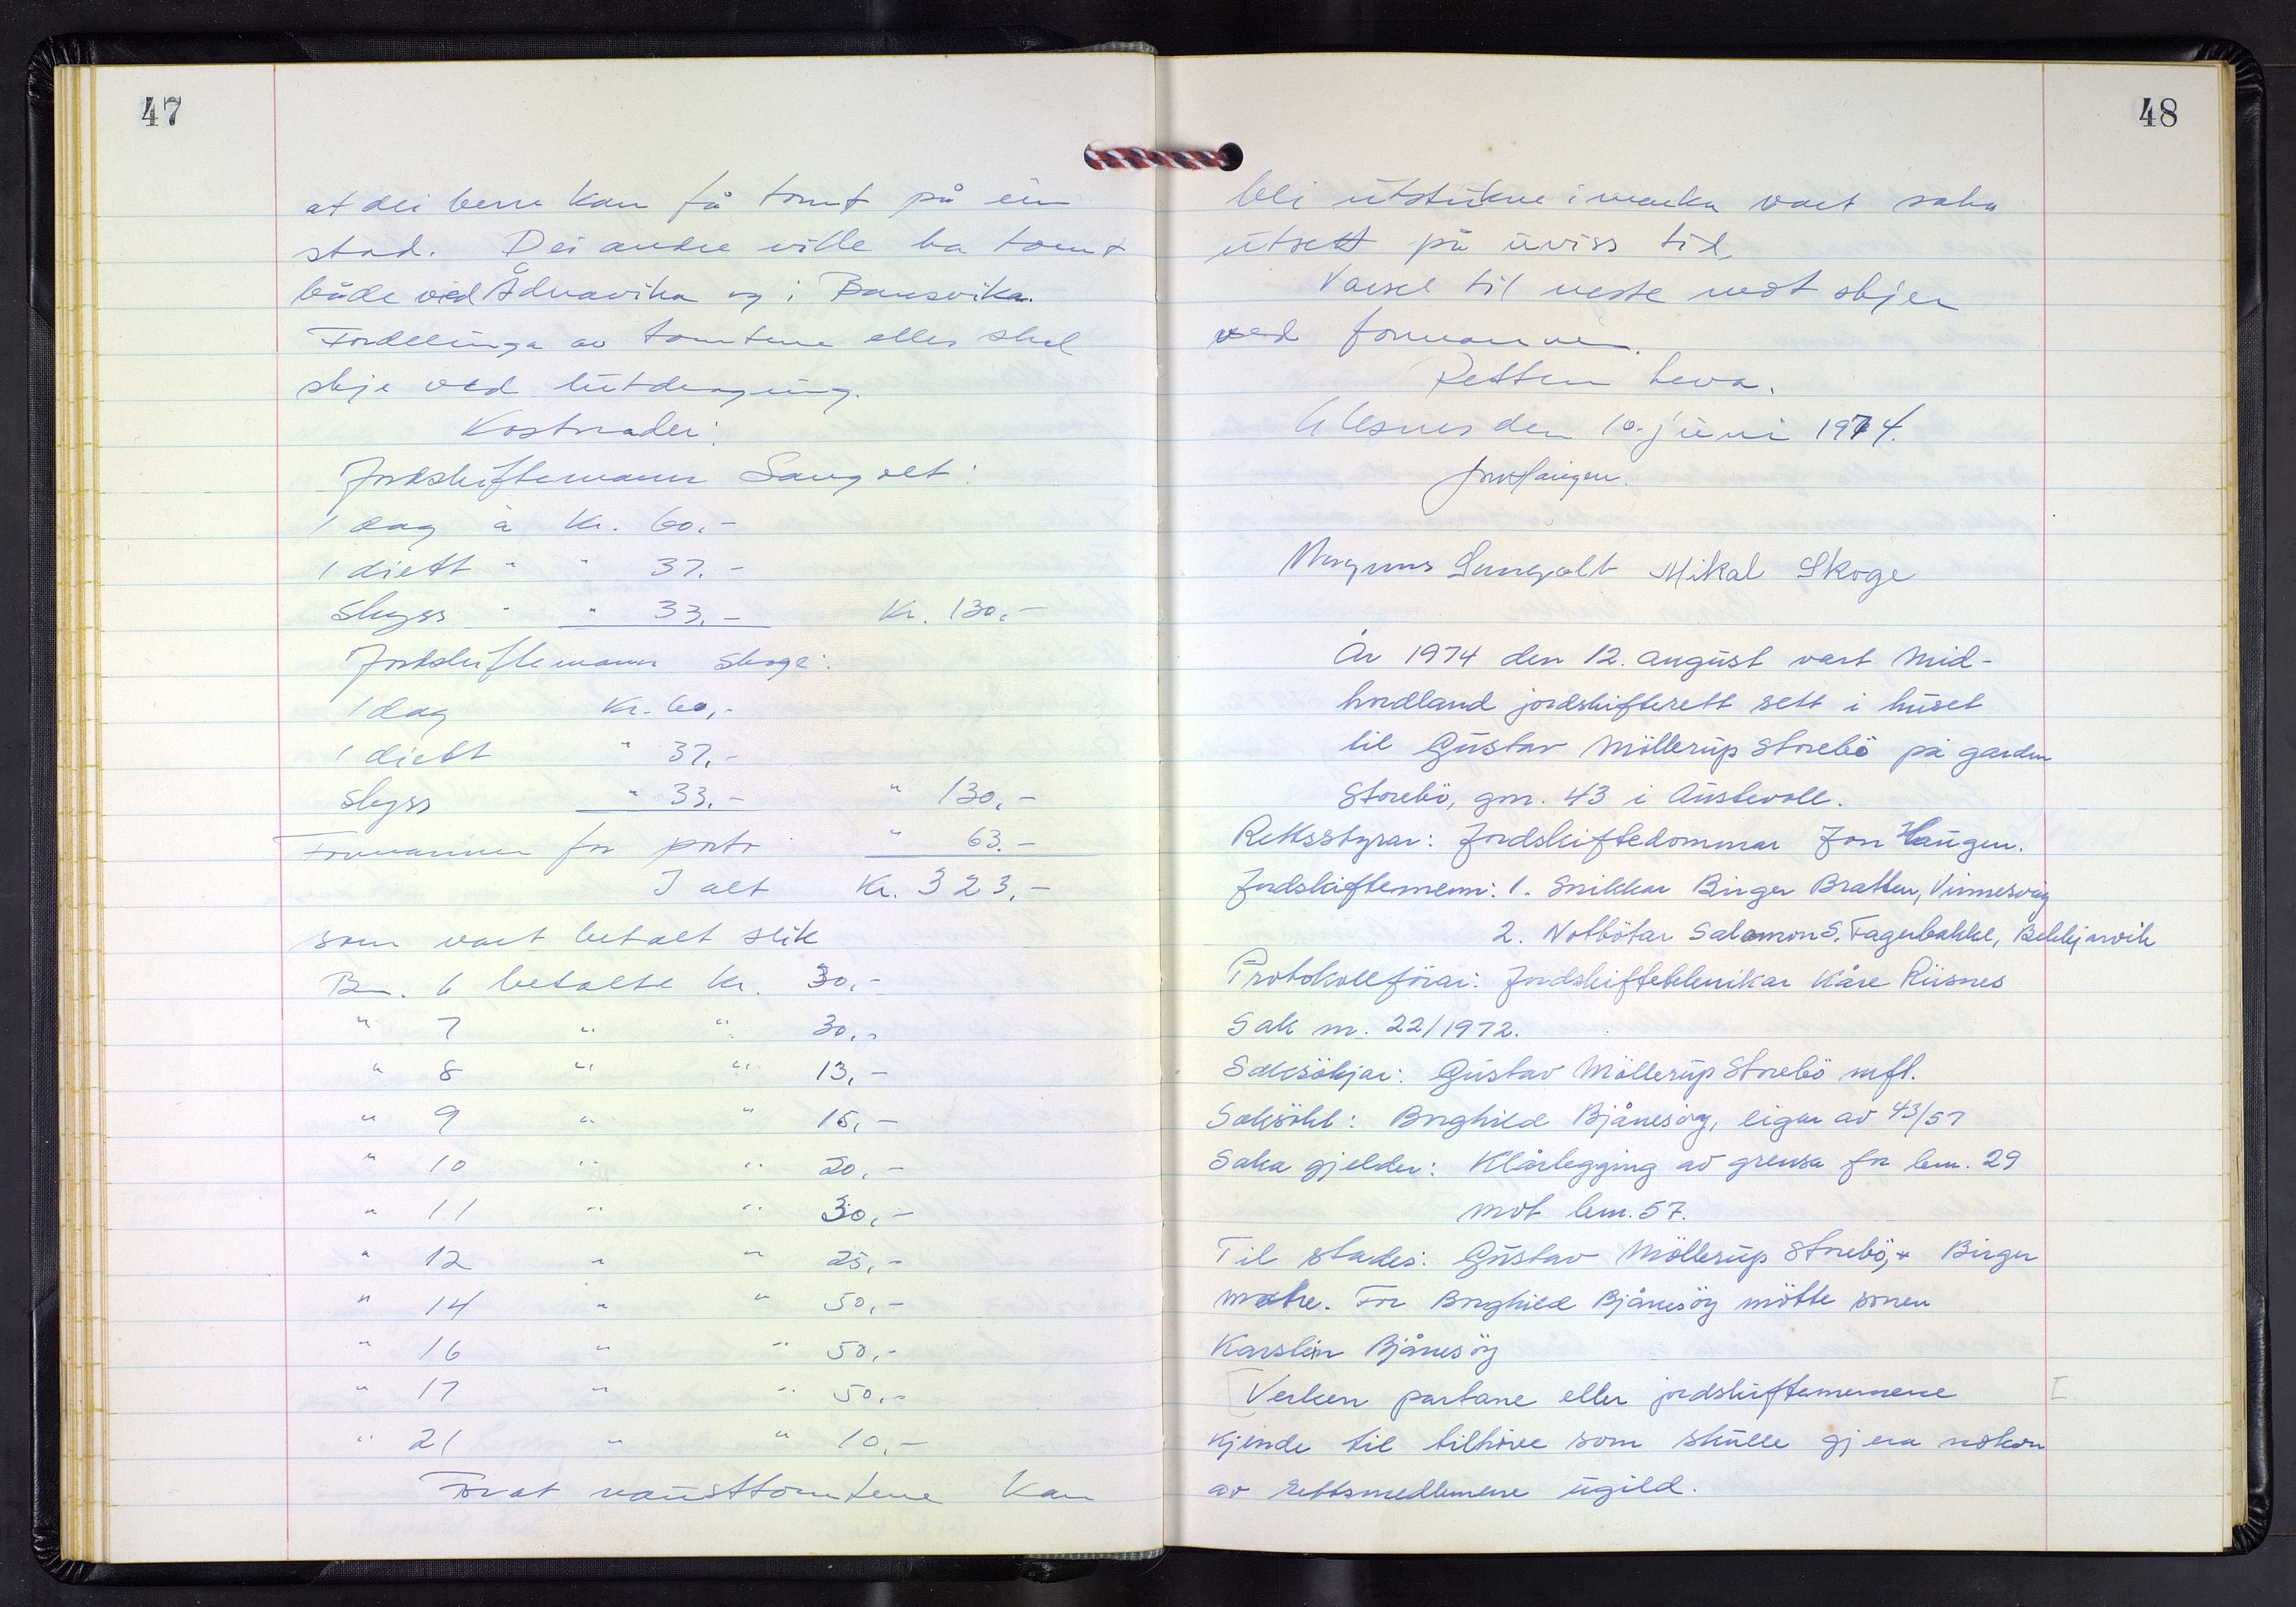 47
at dei berre kan få tomt på ein
stad. Dei andre ville ha tomt
både ved Ådnavika og i Bansvika.
Fordelinga av tomtene elles skal
skje ved lutdraging.
Kostnader:
Jordskiftemann Langolt:
1 dag à kr. 60,-
1 diett " " 37.-
Skyss " " 33,- Kr. 130,-
Jordskiftemann Skoge:
1 dag kr. 60,-
1 diett " 37,-
Skyss " 33,- " 130,-
Formannen for porto " 63.-
I alt Kr. 323,-
som vart betalt slik
Bn. 6 betalte kr. 30,-
" 7 " " 30,-
" 8 " " 13,-
" 9 " " 15,-
" 10 " " 20,-
" 11 " " 30,-
" 12 " " 25,-
" 14 " " 50,-
" 16 " " 50,-
" 17 " " 50,-
" 21 " " 10,-
For at nausttomtene kan
48
bli utstukne i marka vart saka
utsett på uviss tid.
Varsel til neste møt skjer
ved formannen.
Retten heva.
den 10. juni 1974.
Jon Haugen.
Magnus Langolt Mikal Skoge
År 1974 den 12. august vart Mid-
hordland jordskifterett sett i huset
til Gustav Møllerup Storebö på garden
Storebö, gnr. 43 i Austevoll.
Rettsstyrar: Jordskiftedommar Jon Haugen.
Jordskiftemenn: 1. Snikkar Birger Bratten, Vinnesvåg
2. Notbötar Salomon S. Fagerbakke, Bekkjarvik
Protokollförar: Jordskifteteknikar Kåre Riisnes
Sak nr. 22/1972.
Saksökjar: Gustav Möllerup Storebö mfl.
Saksökt: Borghild Bjånesöy, eigar av 43/57
Saka gjelder: Klårlegging av grensa for bnr. 29
mot bnr. 57.
Til stades: Gustav Möllerup Storebö, + Birger
Møtre. For Borghild Bjånesöy mötte sonen
Karstein Bjånesöy
Verken partane eller jordskiftemennene
kjende til tilhöve som skulle gjera nokon
av rettsmedlemene ugild.